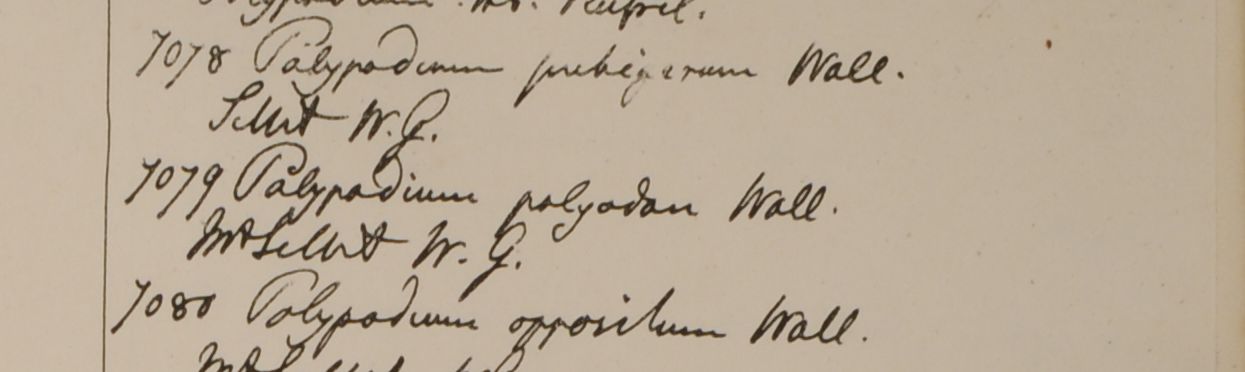 Polypodium Mt.
7078 Polypodium pubigerum Wall.
Sillet W.G.
7079 Polypodium polyodon Wall.
Mt Sillet W. G.
7080 Polypodium oppositum Wall.
Mt